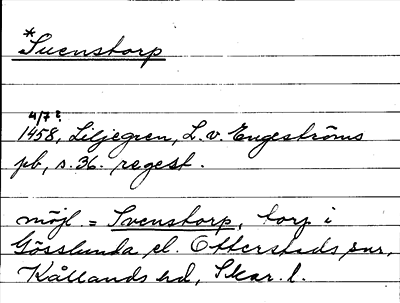 *Suenstorp
4/7?
1458, Liljegren, L. v. Engeströms
pb, s. 36. regest.
möjl. = Svenstorp, torp i
Gösslunda el. Otterstads snr,
Kållands hd, Skar. l.